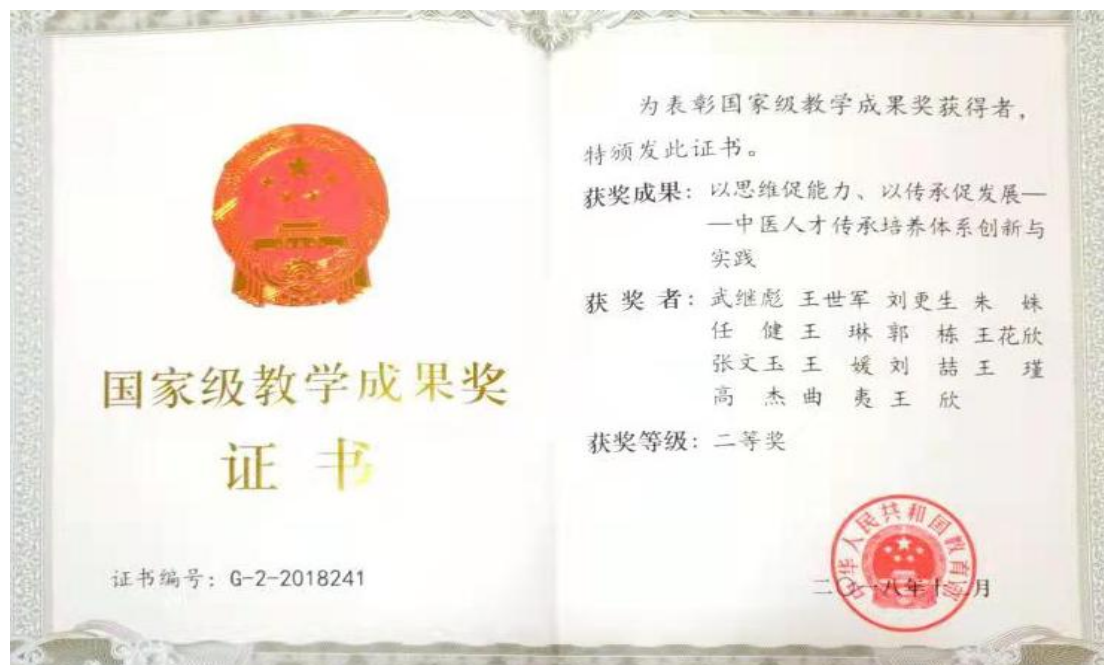 国家级教学成果奖
证书
证书编号：G-2-2018241
为表彰国家级教学成果奖获得者，
特颁发此证书。
获奖成果：以思维促能力、以传承促发展—
—中医人才传承培养体系创新与
实践
获奖者：武继彪 王世军 刘更生 朱 姝
任 健 王 琳 郭 栋 王花欣
张文玉 王 媛 刘 喆 王 瑾
高 杰 曲 夷 王 欣
获奖等级：二等奖
中华人民共和国教育部
二〇一八年十二月